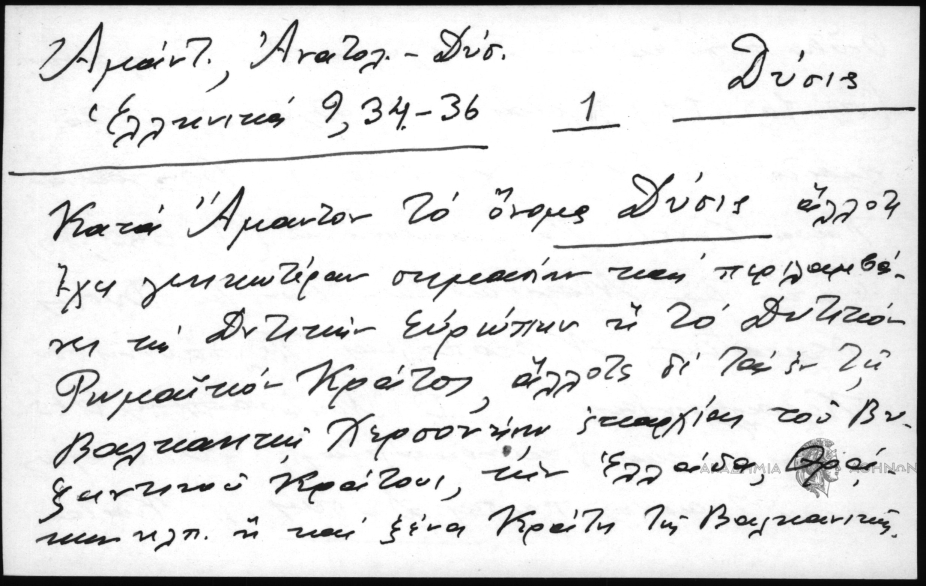 Ἀμάντ., Ἀνατολ. – Δύσ.
Δύσις
Ἑλληνικά 9, 34 – 36
1
Κατά Ἄμαντον τό ὄνομα Δύσις ἄλλοτε
ἔχει γενικωτέραν σημασίαν καί περιλαμβά-
νει τήν Δυτικήν Εὐρώπην ἤ τό Δυτικόν
Ρωμαϊκόν Κράτος, ἄλλοτε δέ τάς ἐν τῇ
Βαλκανικῇ Χερσονήσῳ ἐπαρχίας τοῦ Βυ-
ζαντινοῦ Κράτους, τήν Ἑλλάδα, Θρά-
κην κλπ. ἤ καί ξένα Κράτη τῆς Βαλκανικῆς.
ΑΚΑΔΗΜΙΑ ΑΘΗΝΩΝ